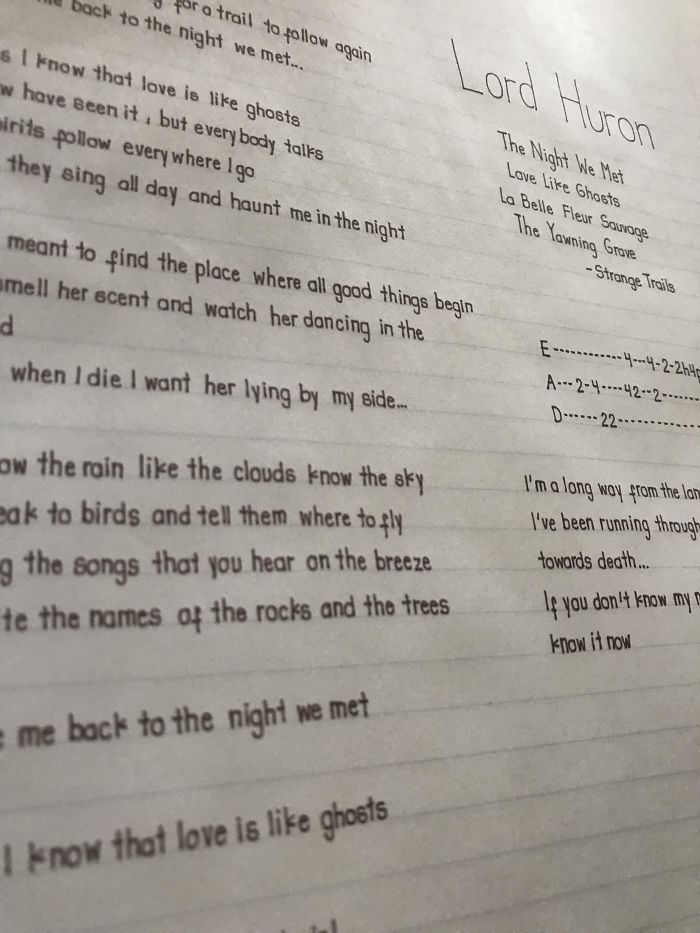 for a trail to follow again
back to the night we met...
I know that love is like ghosts
have seen it, but everybody talks
follow everywhere I go
they sing all day and haunt me in the night
meant to find the place where all good things begin
her scent and watch her dancing in the
when I die I want her lying by my side...
the rain like the clouds know the sky
to birds and tell them where to fly
the songs that you hear on the breeze
the names of the rocks and the trees
me back to the night we met
I know that love is like ghosts
Lord Huron
The Night We Met
Love Like Ghosts
La Belle Fleur Sauvage
The Yawning Grave
- Strange Trails
E------------4---4-2-2h4p
A---2-4----42--2-------
D------22------------
I'm a long way from the
I've been running through
towards death...
If you don't know my
know it now